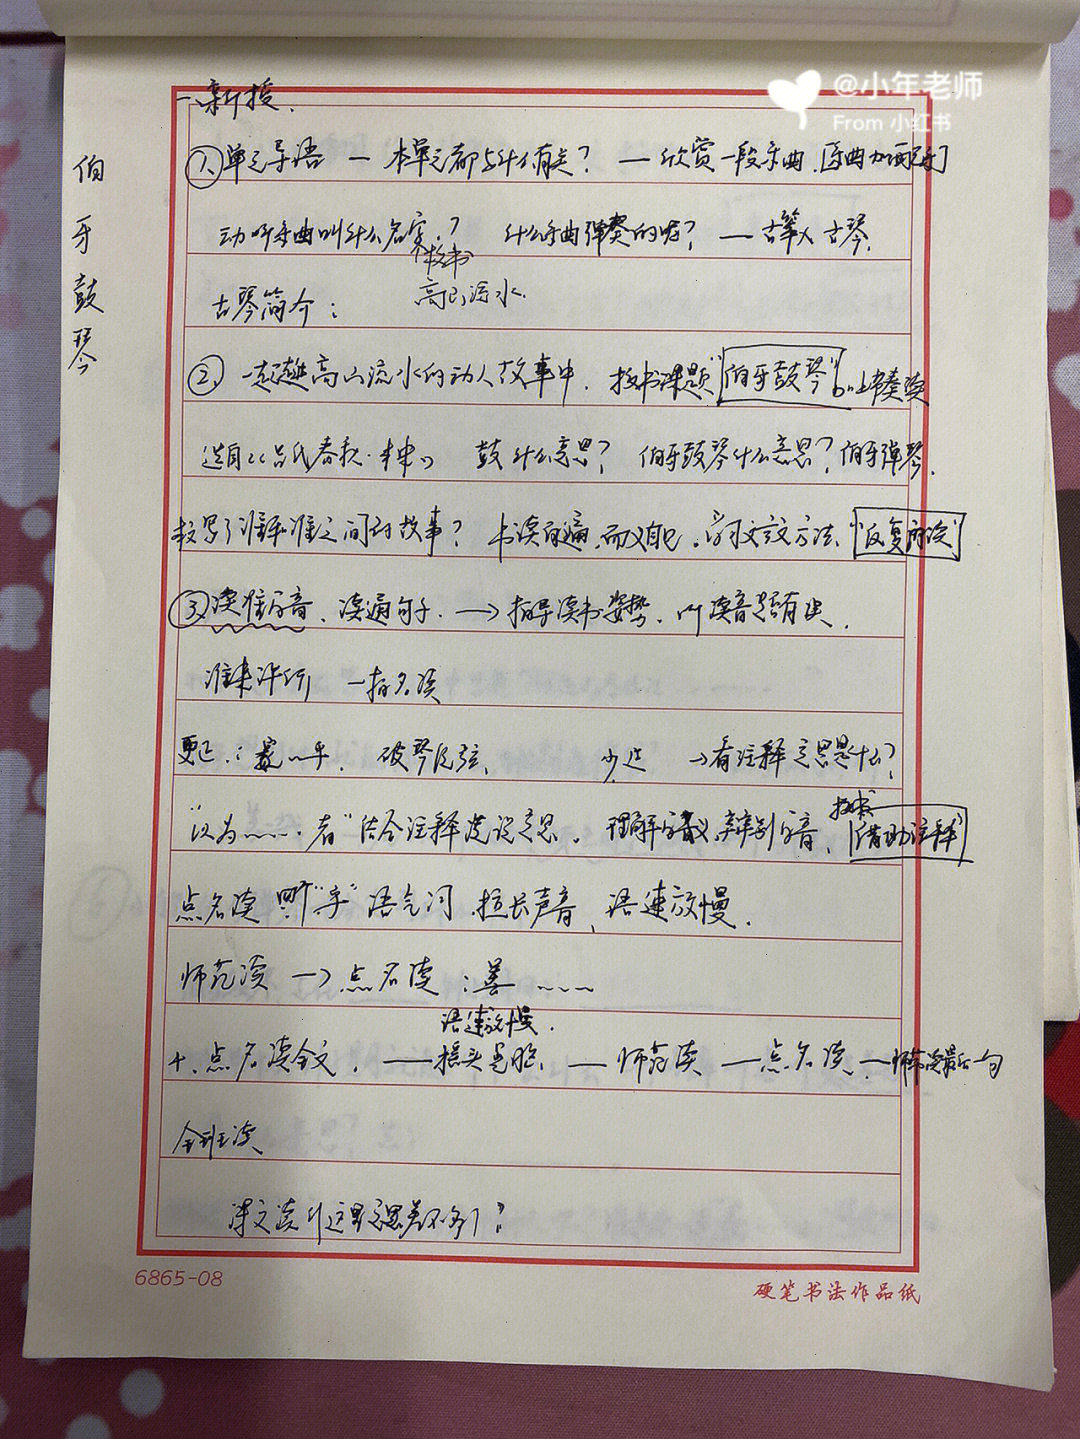 @小年老师
From 小红书
伯牙鼓琴
一、新授.
①单元导语 — 本单元都与什么有关? — 欣赏一段乐曲.
动听乐曲叫什么名字? 什么乐曲弹奏的呢? — 古筝 古琴.
板书
高山流水.
古琴简介:
②. 一起走进高山流水的动人故事中. 板书课题"伯牙鼓琴"
选自《吕氏春秋·本味》 鼓什么意思? 伯牙鼓琴什么意思? 伯牙弹琴.
写了谁和谁之间的故事? 书读百遍,而义自见. 学习文言文方法. "反复诵读"
③读准字音、读通句子. → 指导读书姿势. 听读音是否有误.
谁来评价 — 指名读
更正: 破琴绝弦、 少选 → 看注释意思是什么?
"以为……者"结合注释说说意思. 理解字义,辨别字音. 板书 "借助注释"
点名读 "乎"语气词 拉长声音、语速放慢.
师范读 → 点名读:善……
语速放慢.
点名读全文. — 摇头晃脑. — 师范读 — 点名读. — 师范读最后一句
全班读
课文读到这里意思差不多了?
6865-08
硬笔书法作品纸